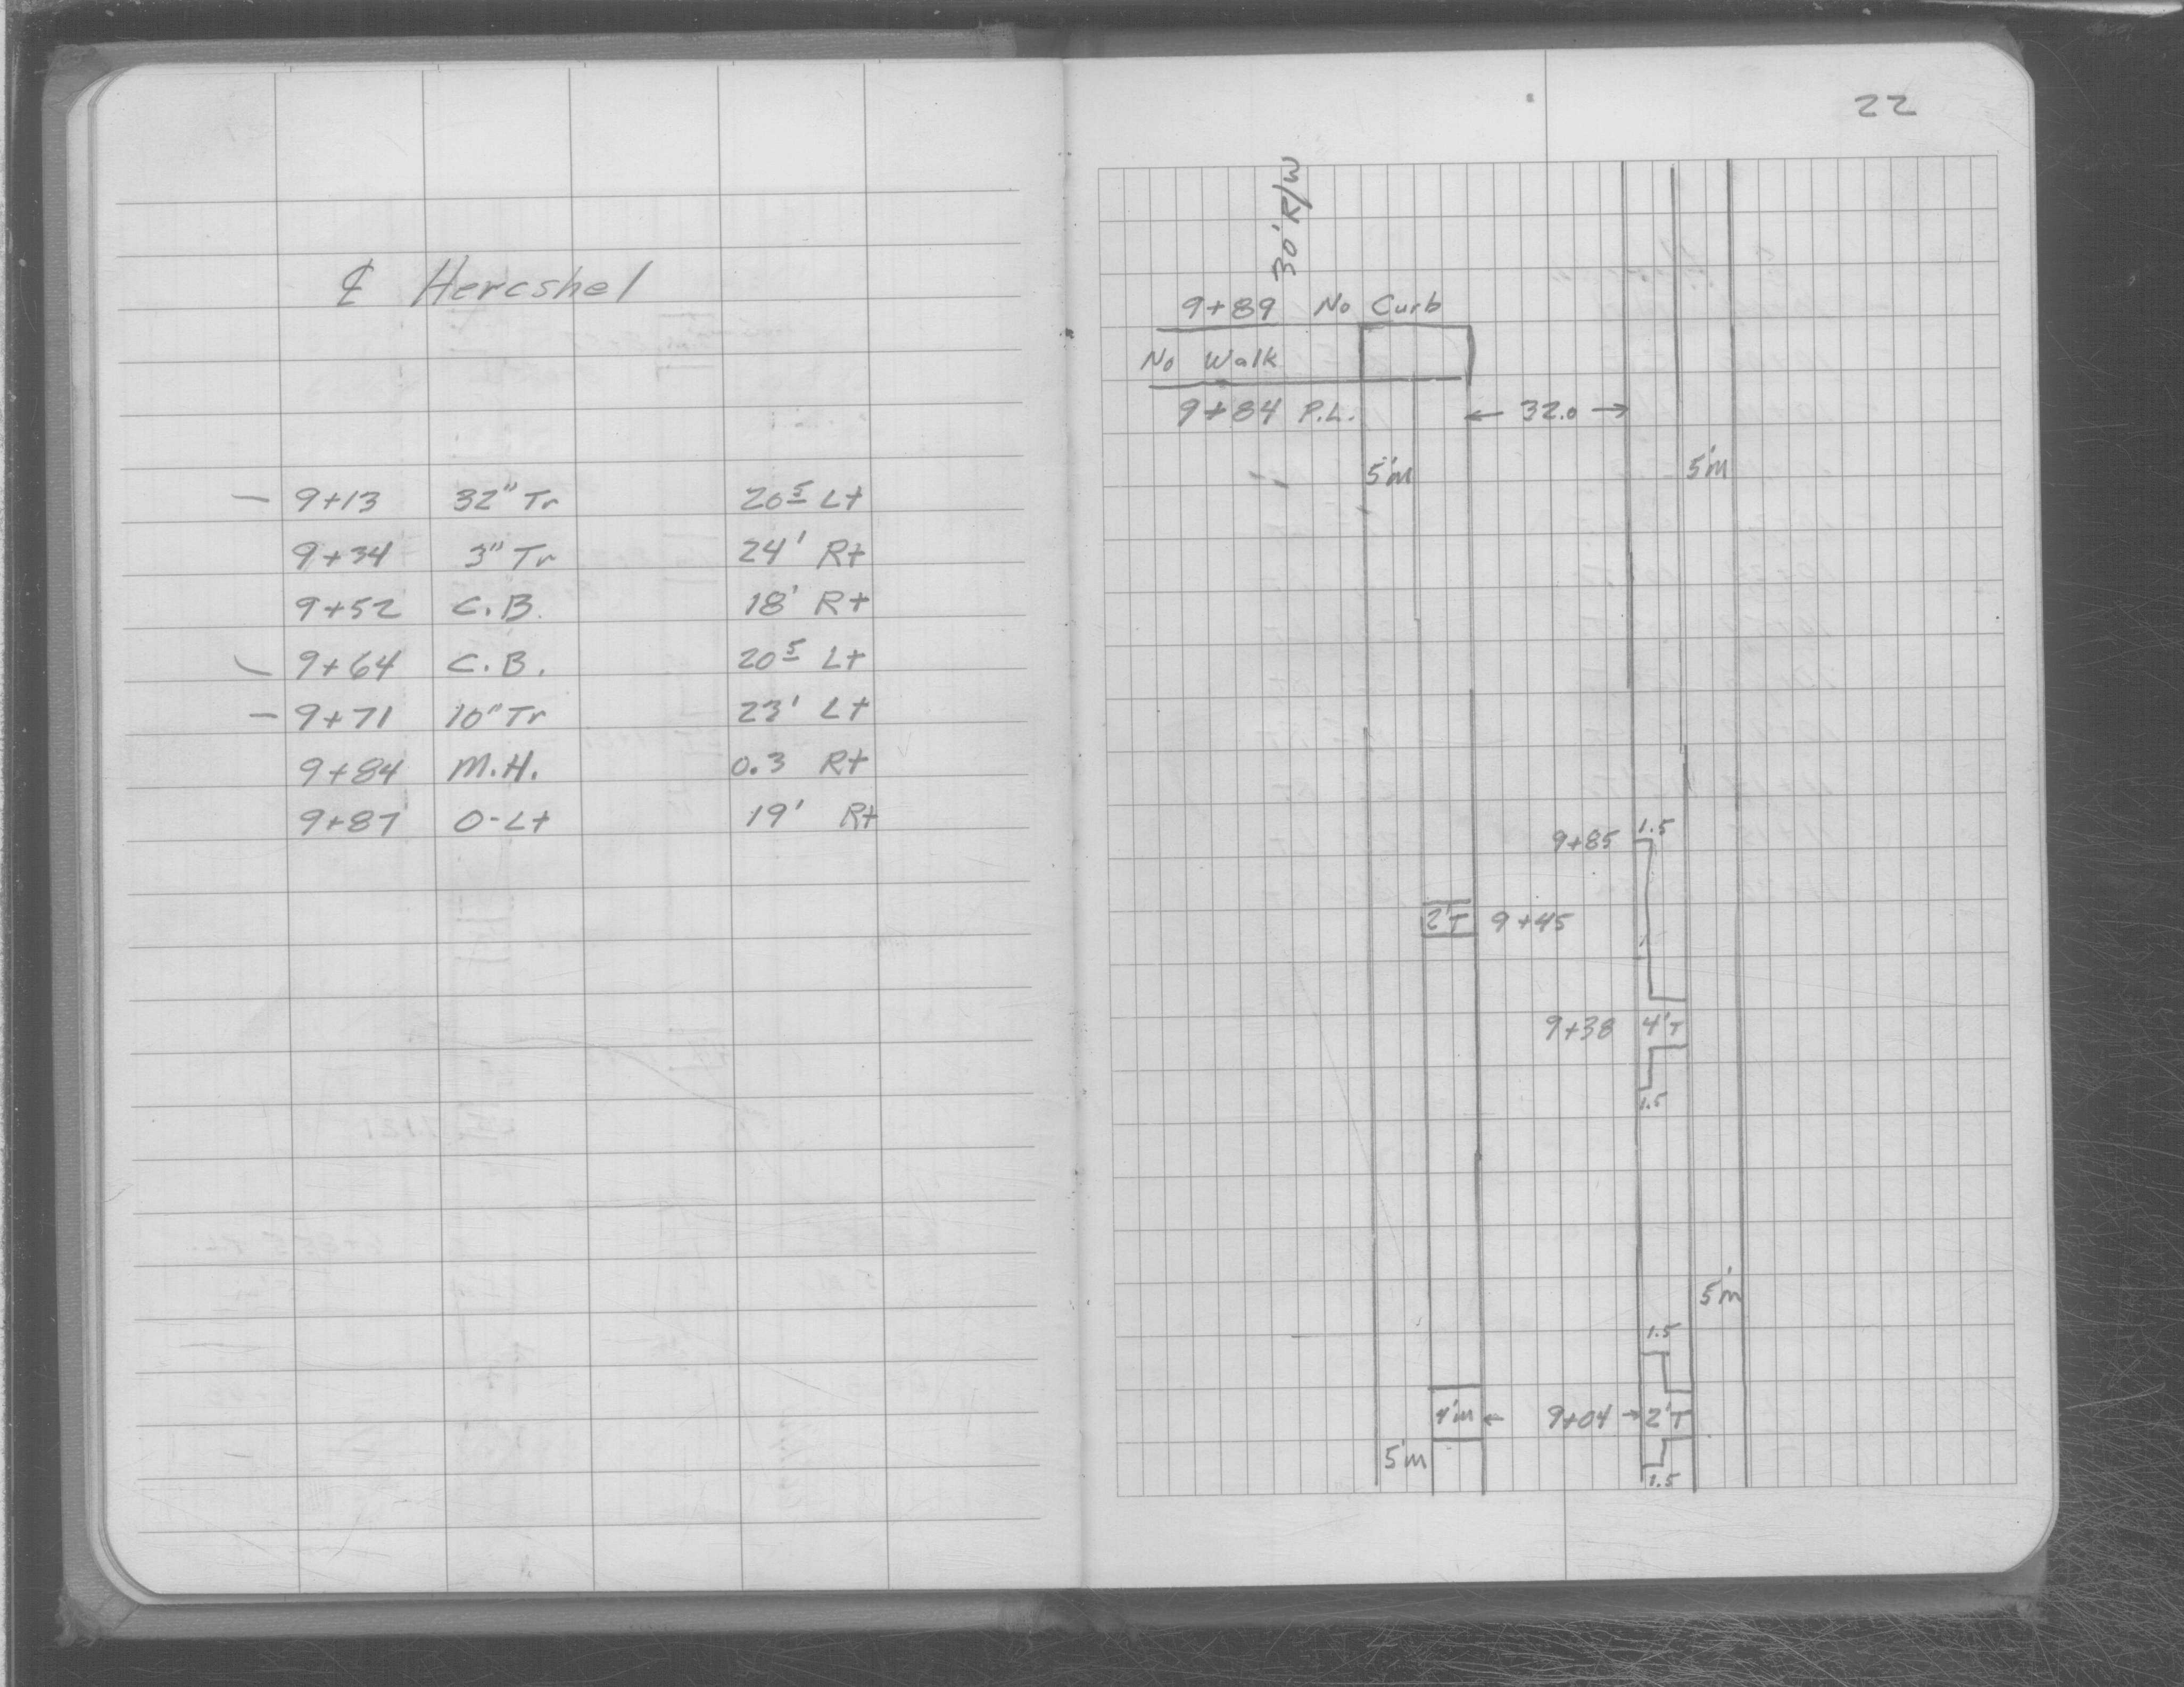 ℄ Hercshel
9+13 32" Tr 20⁵ Lt
9+34 3" Tr 24' Rt
9+52 C.B. 18' Rt
9+64 C.B. 20⁵ Lt
9+71 10" Tr 23' Lt
9+84 M.H. 0.3 Rt
9+87 O-Lt 19' Rt
22
30' R/W
9+89 No Curb
No Walk
9+84 P.L. ← 32.0 →
5'm 5'm
9+85 1.5
2'T 9+45
9+38 4'T
1.5
5'm
1.5
4'm ← 9+04 → 2'T
5'm
1.5